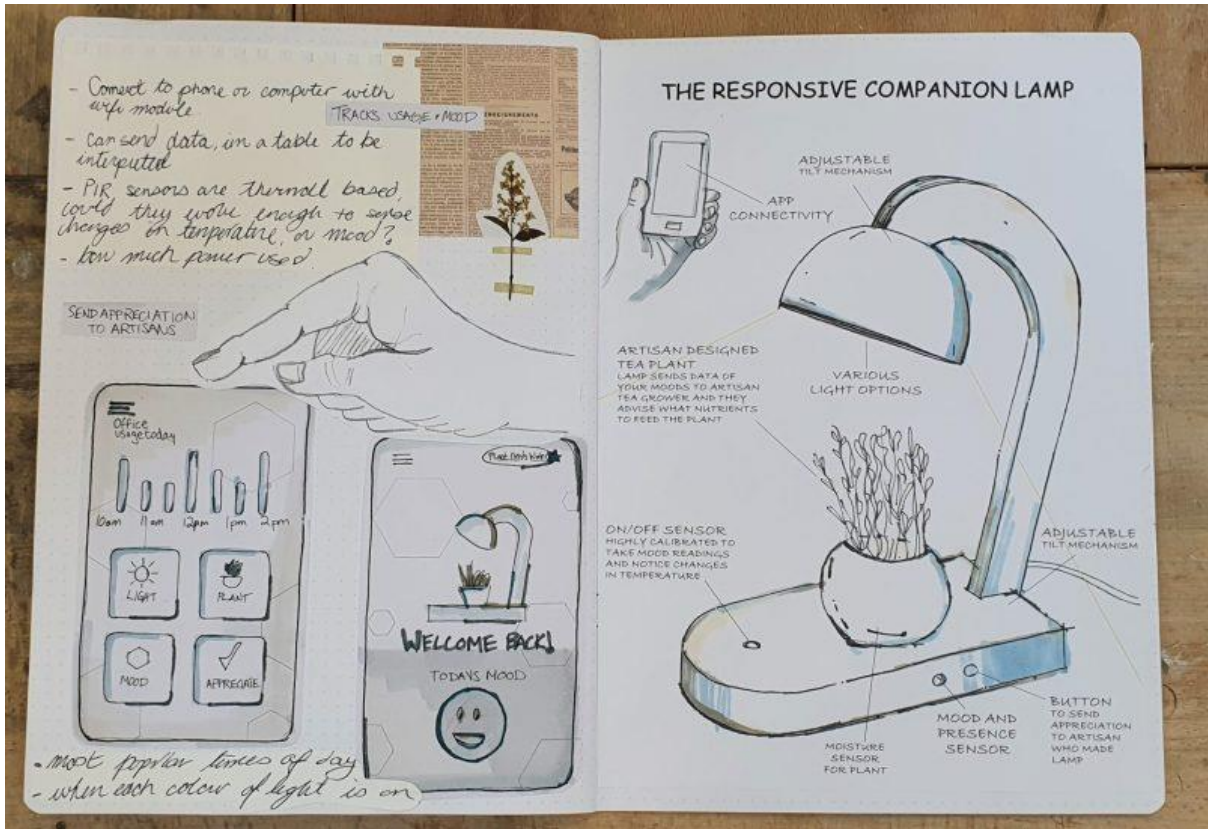 - Connect to phone or computer with
wifi module
- can send data, in a table to be
interputed
- PIR sensors are thermall based,
could they evolve enough to sense
changes in temperature, or mood?
- how much power used
TRACKS USAGE + MOOD
SEND APPRECIATION
TO ARTISANS
Office
usage today
10am 11am 12pm 1pm 2pm
LIGHT
PLANT
MOOD
APPREGATE
WELCOME BACK!
TODAYS MOOD
• most popular times of day
- when each colour of light is on
THE RESPONSIVE COMPANION LAMP
APP
CONNECTIVITY
ADJUSTABLE
TILT MECHANISM
ARTISAN DESIGNED
TEA PLANT
LAMP SENDS DATA OF
YOUR MOODS TO ARTISAN
TEA GROWER AND THEY
ADVISE WHAT NUTRIENTS
TO FEED THE PLANT
VARIOUS
LIGHT OPTIONS
ON/OFF SENSOR
HIGHLY CALIBRATED TO
TAKE MOOD READINGS
AND NOTICE CHANGES
IN TEMPERATURE
ADJUSTABLE
TILT MECHANISM
MOISTURE
SENSOR
FOR PLANT
MOOD AND
PRESENCE
SENSOR
BUTTON
TO SEND
APPRECIATION
TO ARTISAN
WHO MADE
LAMP